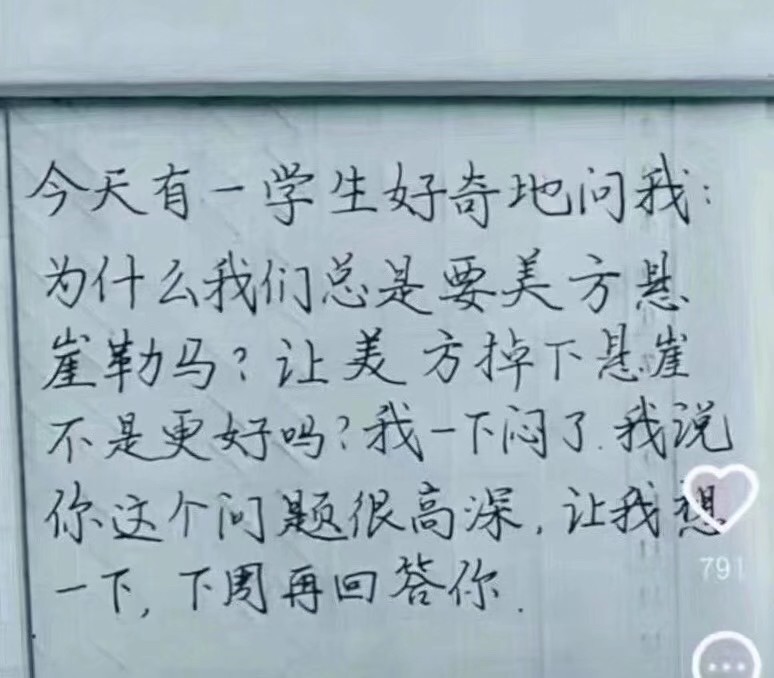 今天有一学生好奇地问我:
为什么我们总是要美方悬
崖勒马?让美方掉下悬崖
不是更好吗?我一下闷了.我说
你这个问题很高深,让我想
一下,下周再回答你.
791